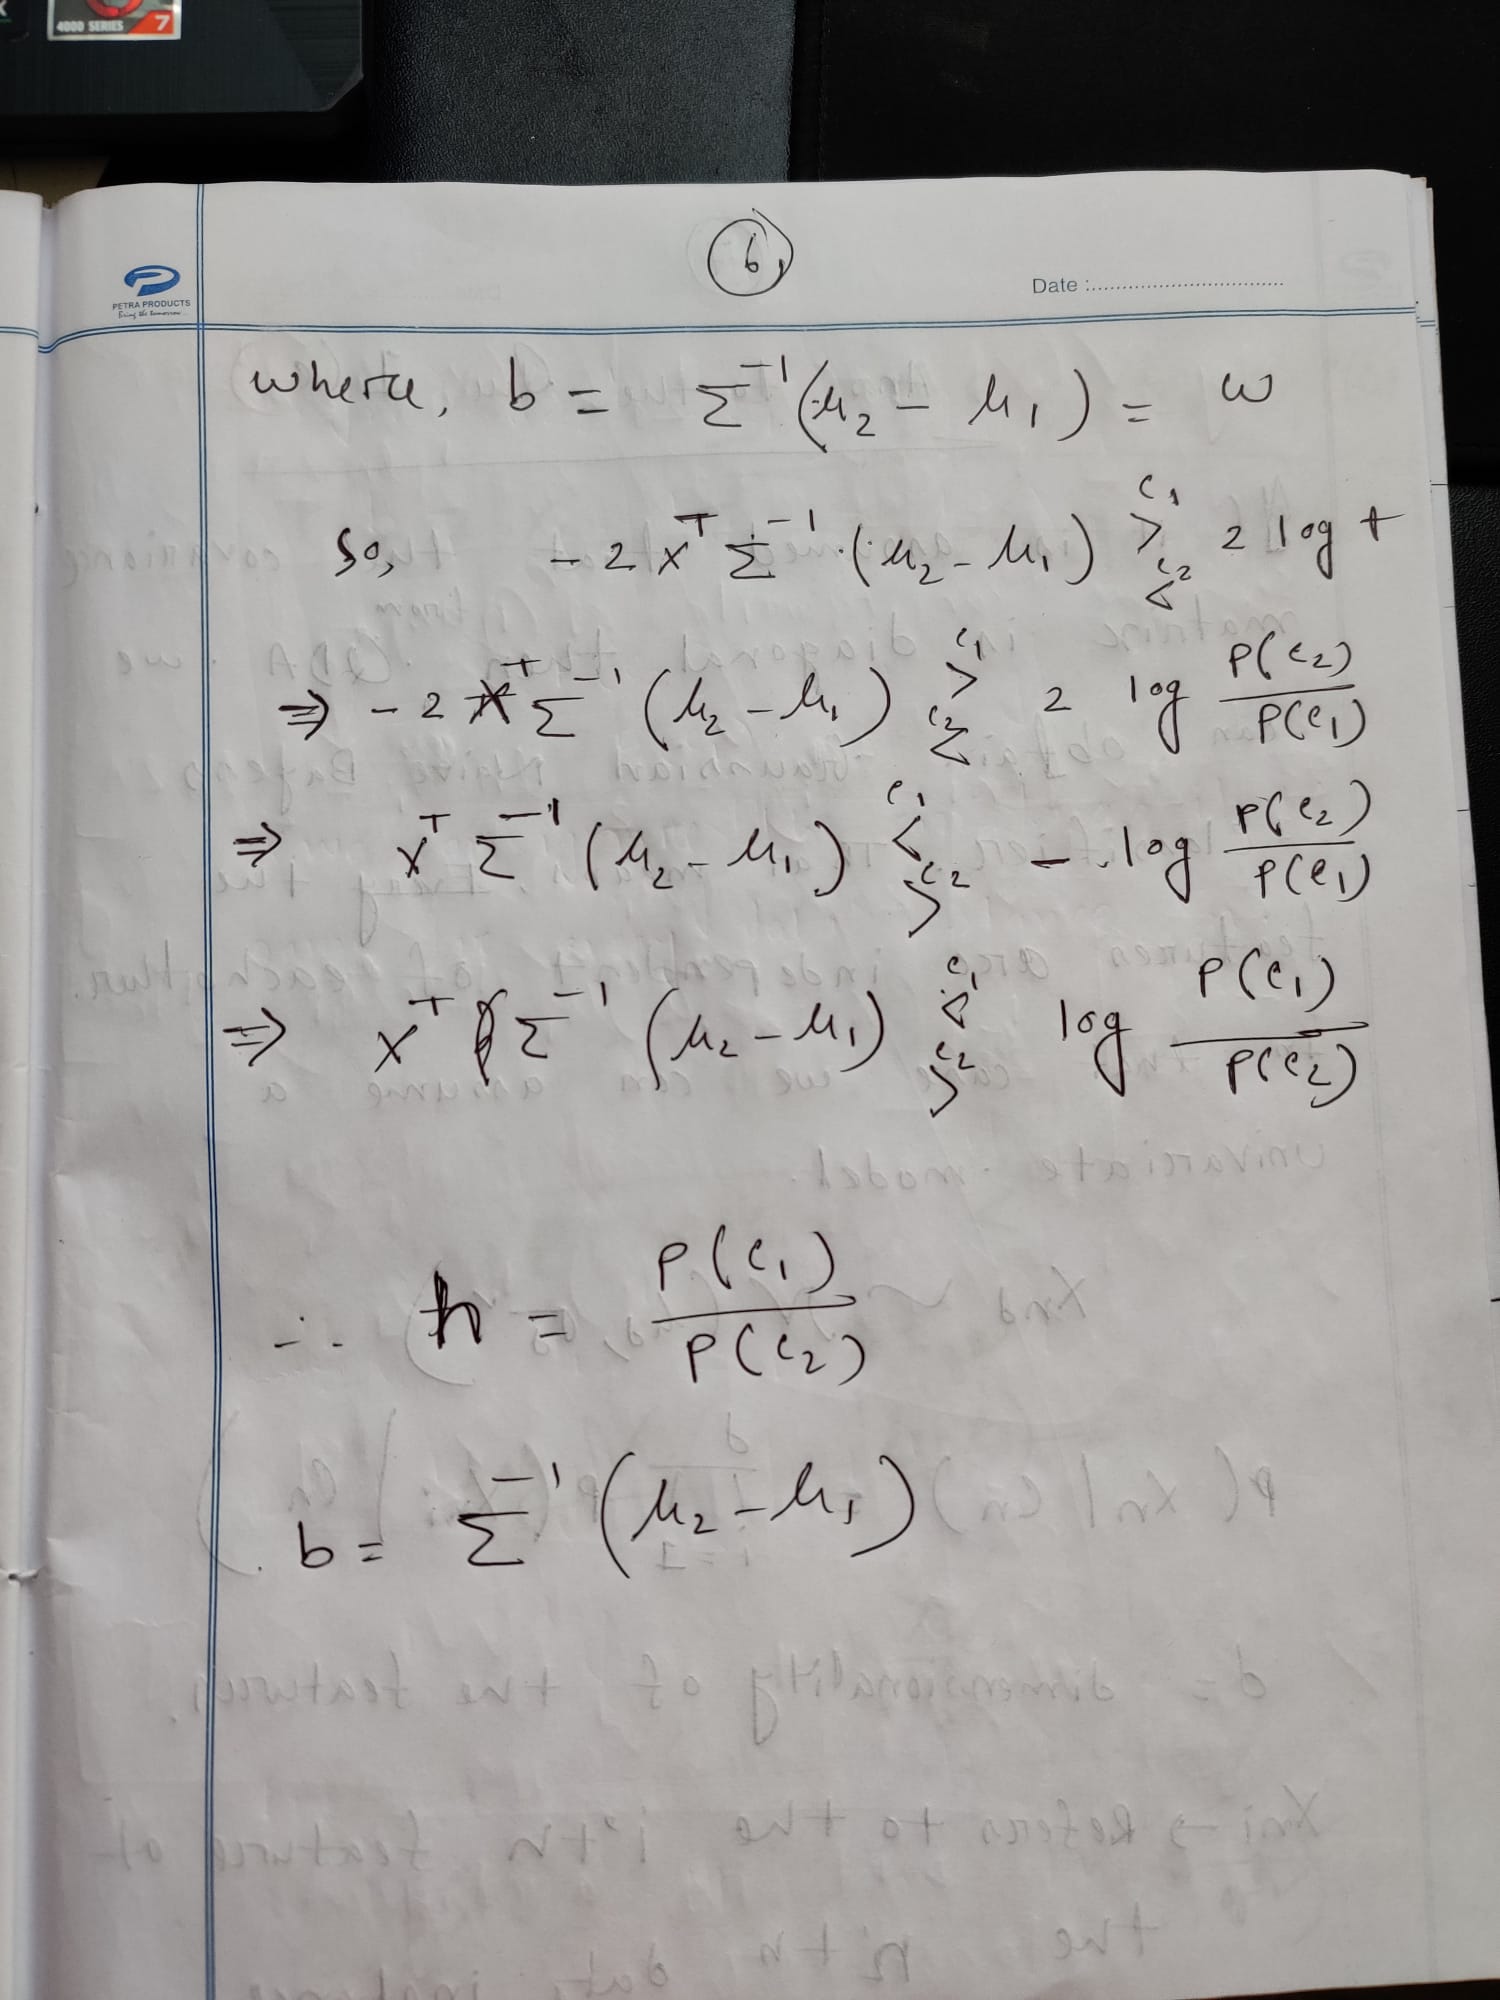 4000 SERIES 7
6,
PETRA PRODUCTS
Bring the tomorrow...
Date :................................
where, b = Σ⁻¹ (μ₂ - μ₁) = ω
So, - 2 x^T Σ⁻¹ (μ₂ - μ₁) >^{c₁} <^{c₂} 2 log t
⇒ - 2 x^T Σ⁻¹ (μ₂ - μ₁) >^{c₁} <^{c₂} 2 log P(c₂)/P(c₁)
⇒ x^T Σ⁻¹ (μ₂ - μ₁) <^{c₁} >^{c₂} - log P(c₂)/P(c₁)
⇒ x^T Σ⁻¹ (μ₂ - μ₁) <^{c₁} >^{c₂} log P(c₁)/P(c₂)
∴ h = P(c₁)/P(c₂)
b = Σ⁻¹ (μ₂ - μ₁)